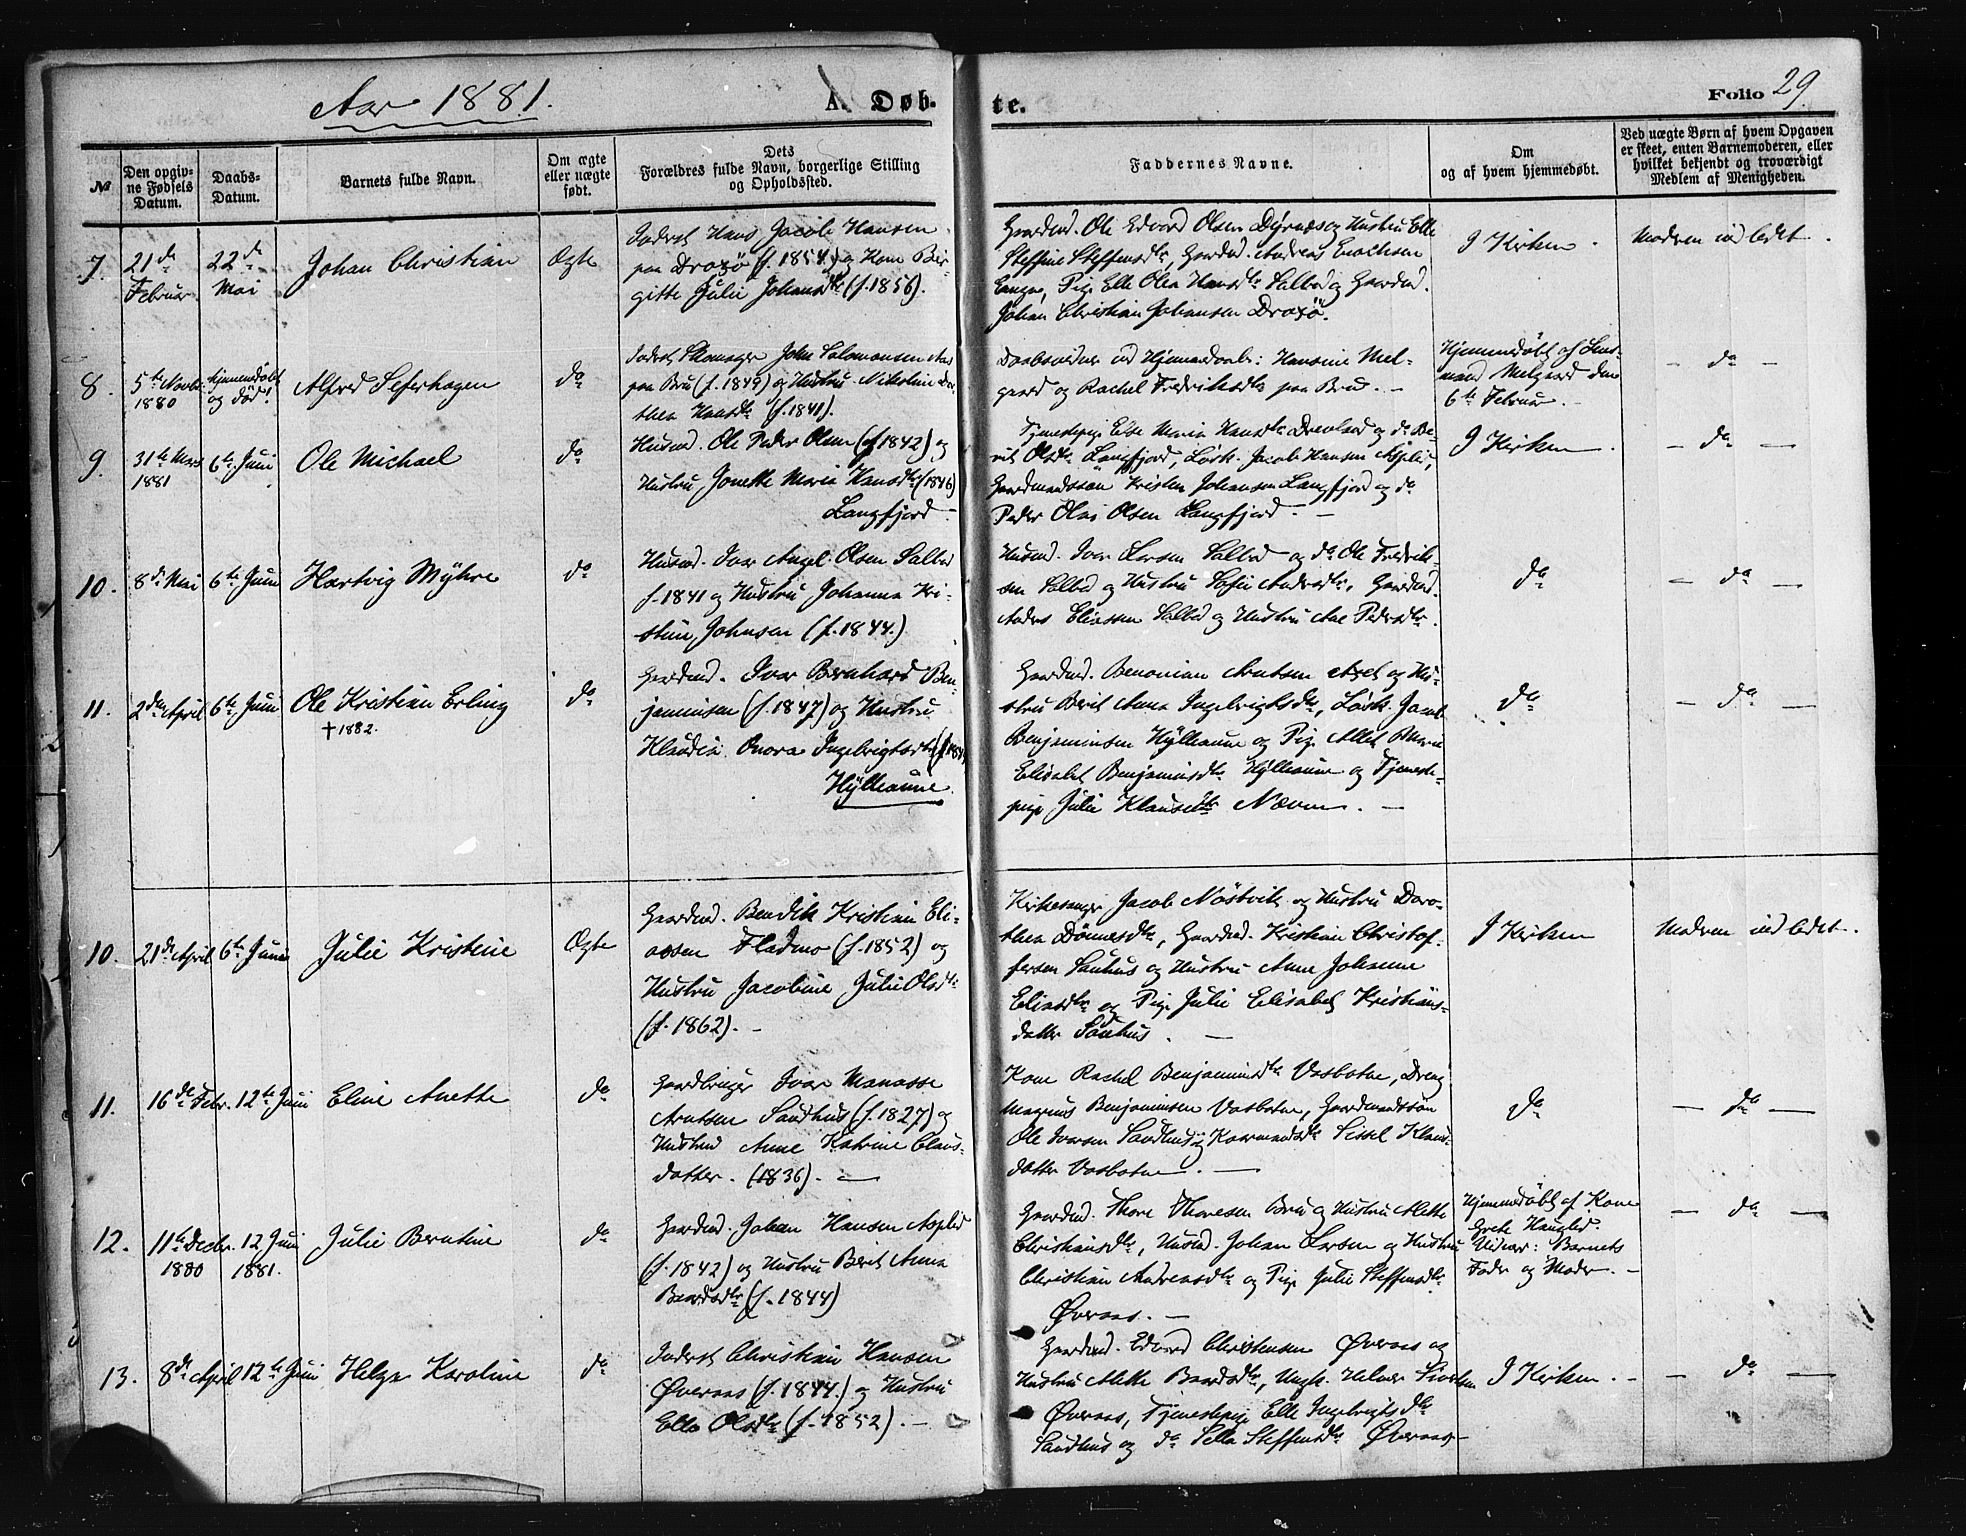 Aar 1881.
A. Døb-
te.
Folio 29.
№
Den opgiv-
ne Fødsels
Datum.
Daabs-
Datum.
Barnets fulde Navn.
Om ægte
eller uægte
født.
Dets
Forældres fulde Navn, borgerlige Stilling
og Opholdssted.
Faddernes Navne.
Om
og af hvem hjemmedøbt.
Ved uægte Børn af hvem Opgaven
er skeet, enten Barnemoderen, eller
hvilket bekjendt og troværdigt
Medlem af Menigheden.
7.
21de
Februar
22de
Mai
Johan Christian
Ægte
Inderst Hans Jacob Hansen
paa Dragø (f. 1854) og Kone Ber-
gitte Julie Johansdtr (f. 1856).
Gaardmd. Ole Edvard Olsen Dyrnæs og Hustru Elle
Steffine Steffensdtr, Gaardmd. Andreas Enochsen
Pige Elle Olea Hansdtr Salbod og Gaardmd.
Johan Christian Johansen Dragø.
I Kirken.
Modren indledet.
8.
5te Novbr
1880
hjemmedøbt
og død!
Alfred Seferhagen
do
Inderst Skomager John Salomonsen
paa Bru (f. 1849) og Hustru Nikoline Do-
thea Hansdtr (f. 1841).
Daabsvidner ved Hjemmedaaben: Hansine Mel-
gaard og Rachel Fredriksdtr paa Brue. —
Hjemmedøbt af Lens-
mand Melgaard den
6te Februar. —
— do —
9.
31te Mars
1881
6te Juni
Ole Michael
do
Husmd. Ole Peder Olsen (f. 1842) og
Hustru Jonette Maria Hansdtr (f. 1846)
Langfjord —
Tjenestepige Else Maria Hansdtr og do Be-
rit Olsdtr Langfjord, Losk. Jacob Hansen Asplie,
Gaardmandssøn Kristen Johansen Langfjord og do
Peder Olai Olsen Langfjord. —
I Kirken.
— do —
10.
8de Mai
6te Juni
Hartvig Myhre
do
Husmd. Ivar Angel Olsen Salbod
f. 1841 og Hustru Johanna Kri-
stine Johnsen (f. 1844.)
Husmd. Ivar Larsen Salbod og do Ole Fredrik-
sen Salbod og Hustru Sofie Andersdtr, Gaardmd.
Anders Eliassen Salbod og Hustru Ane Pedersdtr.
do
— do —
11.
2den April
6te Juni
Ole Kristian Erling
† 1882.
do
Gaardmd. Ivar Bernhard Ben-
jaminsen (f. 1847) og Hustru
Klaudia Onora Ingebrigtsdtr
Hylleaune.
Gaardmd. Benonian Arntsen og Hu-
stru Berit Anna Ingebrigtsdtr, Løsk. Jacob
Benjaminsen Hylleaune og Pige Alet Marie
Elisabet Benjaminsdtr Hylleaune og Tjeneste-
pige Julie Klausdtr Næven. —
do
— do —
10.
21de April
6te Juni
Julie Kristine
Ægte
Gaardmd. Bendik Kristian Eli-
assen Fladmo (f. 1852) og
Hustru Jacobine Julie Olsdtr
(f. 1862). —
Kirkesanger Jacob Nøstvik og Hustru Doro-
thea Dønnesdtr, Gaardmd. Kristian Christof-
fersen Sauhus og Hustru Anne Johanne
Eliasdtr og Pige Julie Elisabet Kristians-
datter Sauhus. —
I Kirken
Modren indledet.
11.
16de Febr.
12te Juni
Eline Anette
do
Gaardbruger Ivar Manasse
Arntsen Sandhus (f. 1827) og
Hustru Anne Katrine Claus-
datter. (1836). —
Kone Rachel Benjaminsdtr Vasbotne, Dreng
Magnus Benjaminsen Vasbotne, Gaardmandssøn
Ole Iversen Sandhus og Sissel Klaus-
datter Vasbotne. —
do
— do —
12.
11te Decbr.
1880
12 Juni
1881.
Julie Berntine
do
Gaardmd. Johan Hansen Asplid
(f. 1842) og Hustru Berit Anna
Baardsdtr (f. 1844)
Gaardmd. Thore Thoresen Brue og Hustru Alette
Christiansdtr, Husmd. Johan Larsen og Hustru
Christian Andreasdtr og Pige Julie Steffensdtr
Øveraas. —
Hjemmedøbt af Kone
Grete Hauglid.
Vidner: Barnets
Fader og Moder. —
— do —
13.
8de April
12te Juni
Helga Karoline
do
Inderst Christian Hansen
Øveraas (f. 1844.) og Hustru
Elle Olsdtr (f. 1852). —
Gaardmd. Edvard Christensen Øveraas og
Hustru Alette Baardsdtr, Ungk. Helmer
Øveraas, Tjenestepige Elle Ingebrigtsdtr
Sandhus og do Sella Steffensdtr Øveraas —
I Kirken.
— do —